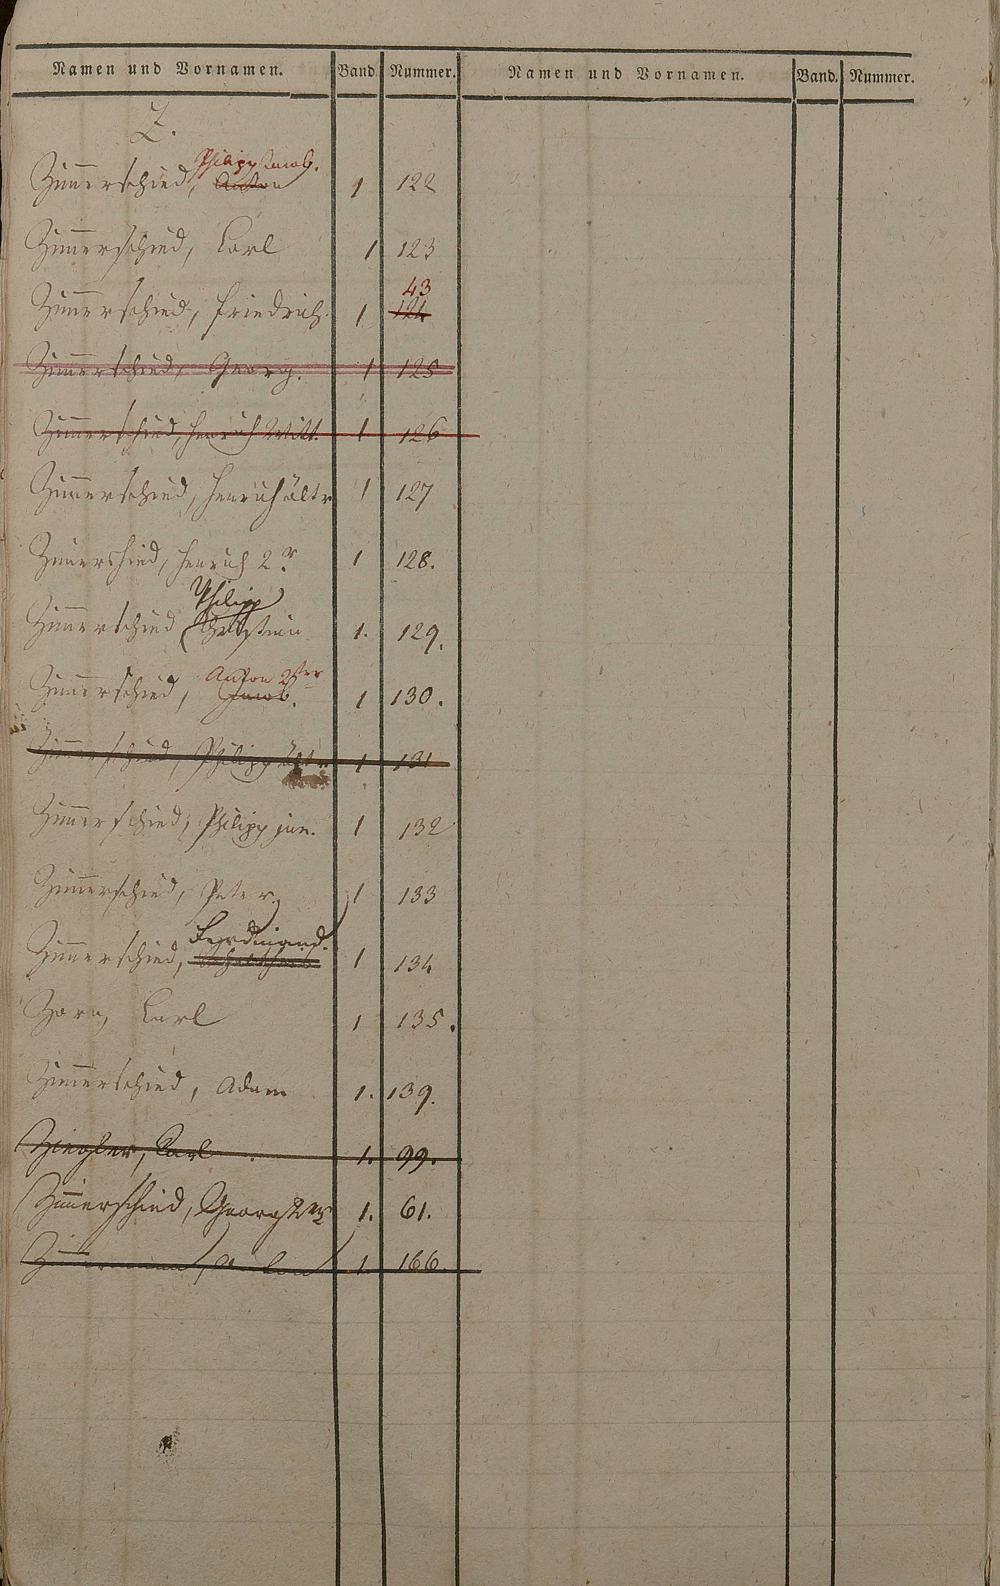 Namen und Vornamen. Band. Nummer. Namen und Vornamen. Band. Nummer.
Z.
Philipp Jacob.
Zimmerschied, Anton 1 122
Zimmerschied, Carl 1 123
43
Zimmerschied, Friedrich 1 124
Zimmerschied, Georg. 1 125
Zimmerschied, Henrich Witt. 1 126
Zimmerschied, Henrich ältr 1 127
Zimmerschied, Henrich 2r 1 128.
Philipp
Zimmerschied Christian 1. 129.
Anton 2ter
Zimmerschied, Jacob. 1 130.
Zimmerschied, Philipp ältr 1 131
Zimmerschied, Philipp jun. 1 132
Zimmerschied, Peter 1 133
Ferdinand.
Zimmerschied, 1 134
Zorn, Carl 1 135.
Zimmerschied, Adam 1. 139.
Ziegler, Carl 1. 99.
Zimmerschied, Georg 2ter 1. 61.
1. 166.